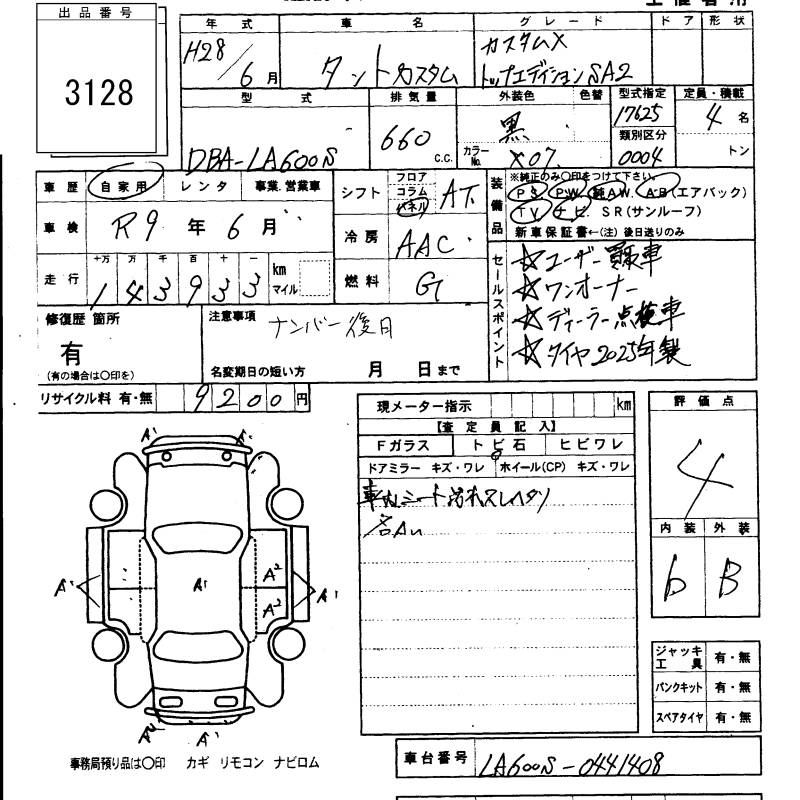 出品番号
3128
年式 車名 グレード ドア 形状
H28/6月 タントカスタム カスタムX
トップエディションSA2
型式 排気量 外装色 色替 型式指定 定員・積載
DBA-LA600S 660 C.C. 黒 17625 4名
カラーNo. X07 類別区分 0004 トン
車歴 自家用 レンタ 事業.営業車
シフト フロア コラム パネル AT
装備品 ※純正のみ〇印をつけて下さい。
PS PW 純AW. AB(エアバック)
TV ナビ SR(サンルーフ)
新車保証書←(注)後日送りのみ
車検 R9年6月
冷房 AAC
走行 十万 万 千 百 十 一
143933 km マイル
燃料 G
セールスポイント
☆ユーザー買取車
☆ワンオーナー
☆ディーラー点検車
☆タイヤ2025年製
修復歴 箇所
有
(有の場合は〇印を)
注意事項
ナンバー後日
名変期日の短い方 月 日まで
リサイクル料 有・無 9200円
現メーター指示 km
【査定員記入】
Fガラス トビ石 ヒビワレ
ドアミラー キズ・ワレ ホイール(CP) キズ・ワレ
車内シート汚れスレヘタリ
各AU
評価点
4
内装 外装
b B
A' A'
A' A' A² A'
A²
A'
ジャッキ工具 有・無
パンクキット 有・無
スペアタイヤ 有・無
事務局預り品は〇印 カギ リモコン ナビロム
車台番号 LA600S-0441408